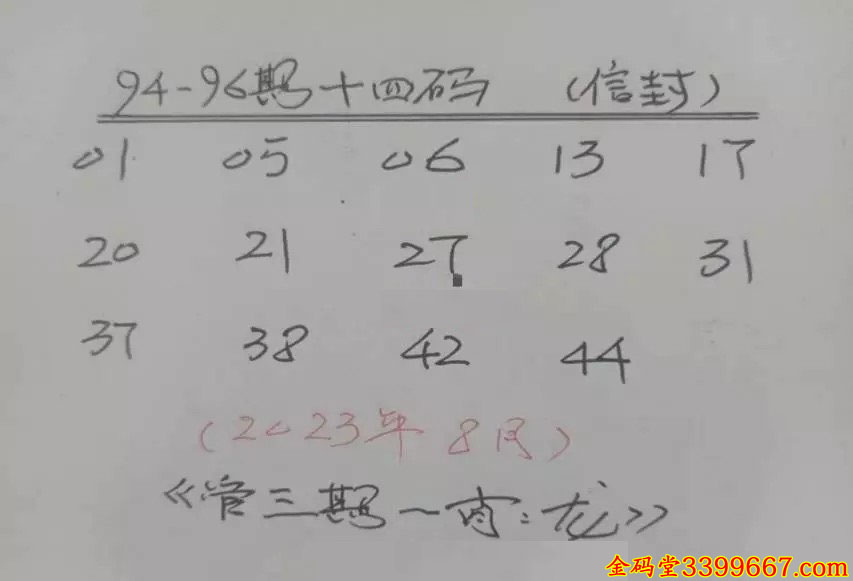 94-96期十四码 (信封)
01 05 06 13 17
20 21 27 28 31
37 38 42 44
(2023年8月)
《管三期一肖:龙》
金码堂3399667.com